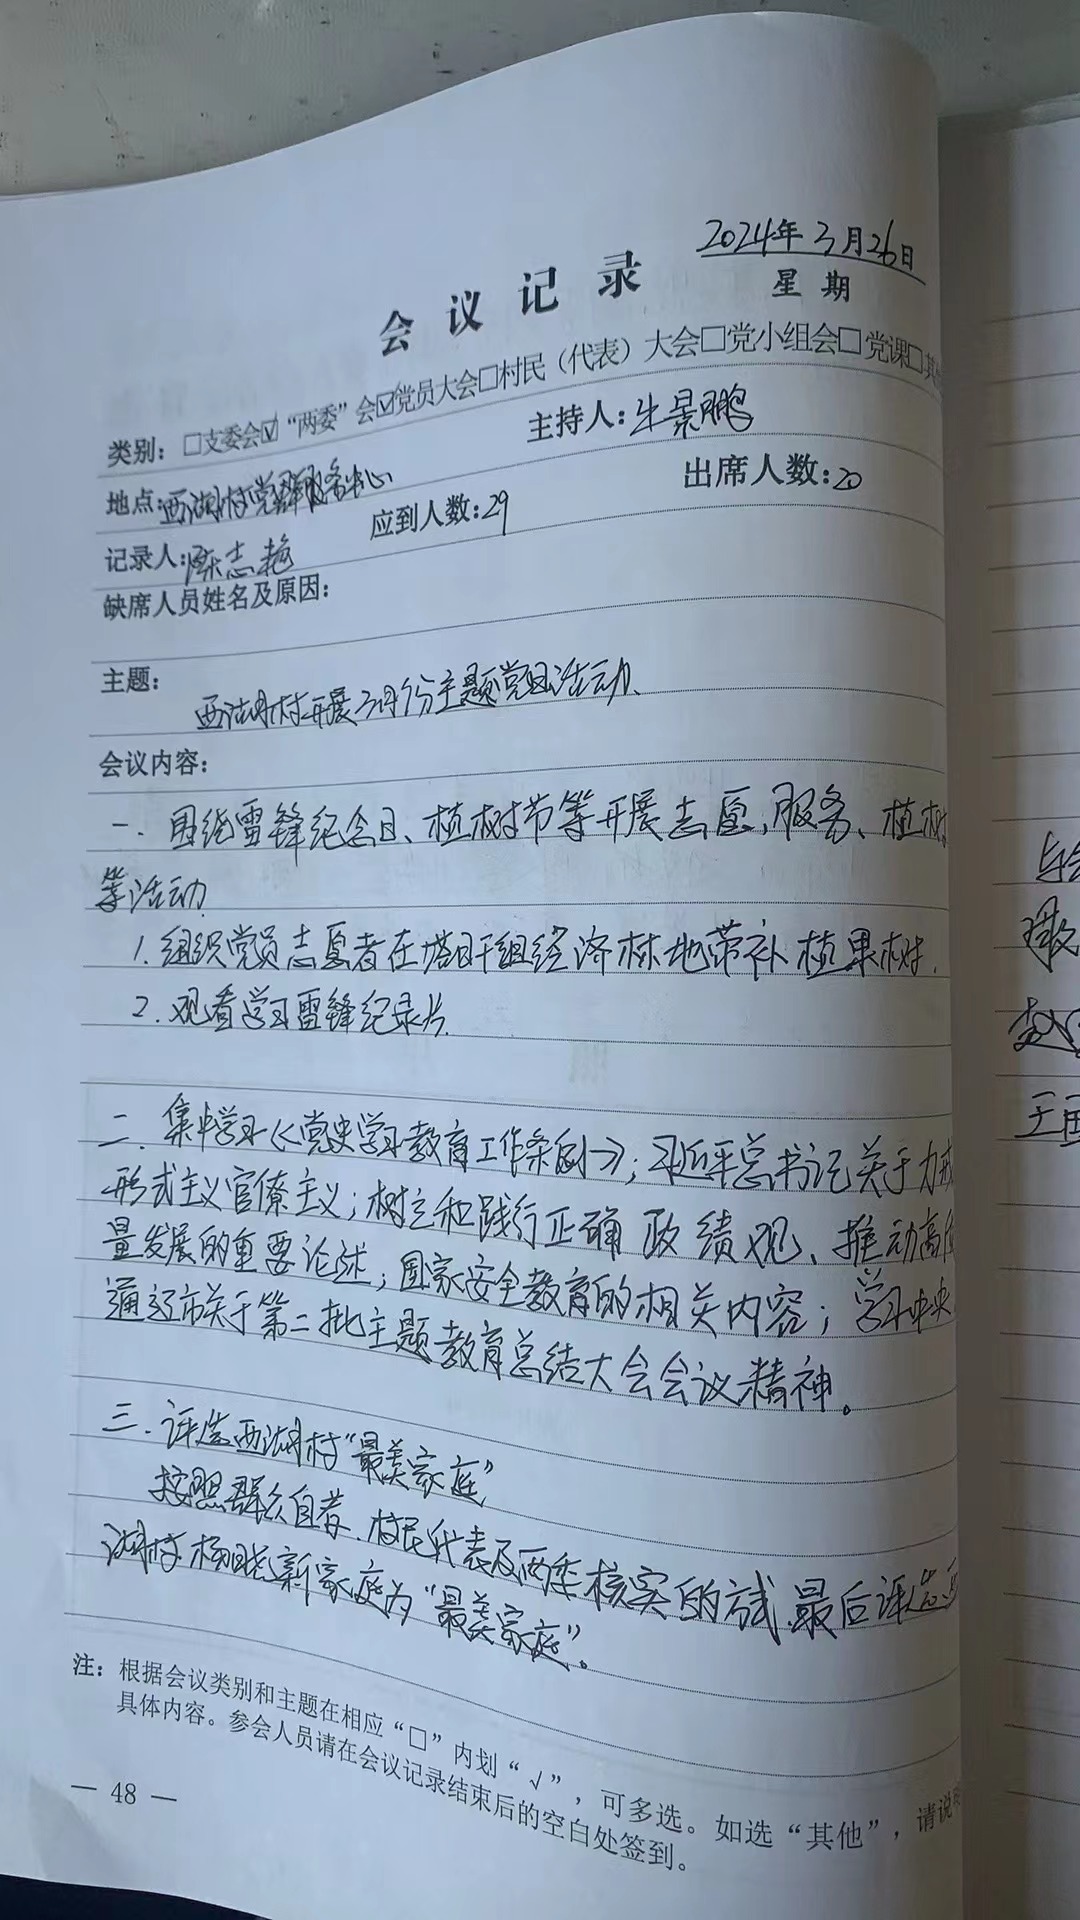 2024年3月26日
会议记录
星期
类别：□支委会☑“两委”会☑党员大会□村民（代表）大会□党小组会□党课□其
地点:西湖村党群服务中心
主持人:牛景鹏
记录人:陈志艳
应到人数:29
出席人数:20
缺席人员姓名及原因:
主题:
西湖村开展3月份主题党日活动.
会议内容:
一.围绕雷锋纪念日、植树节等开展志愿服务、植树
等活动.
1.组织党员志愿者在塔日干组经济林地带补植果树.
2.观看学习雷锋纪录片.
二.集中学习《党史学习教育工作条例》;习近平总书记关于力戒
形式主义官僚主义;树立和践行正确政绩观、推动高质
量发展的重要论述;国家安全教育的相关内容;学习中央
通辽市关于第二批主题教育总结大会会议精神。
三.评选西湖村“最美家庭”
按照群众自荐.村民代表及两委核实的方式.最后评选西
湖村杨晓新家庭为“最美家庭”。
注：根据会议类别和主题在相应“□”内划“√”，可多选。如选“其他”，请说
具体内容。参会人员请在会议记录结束后的空白处签到。
— 48 —